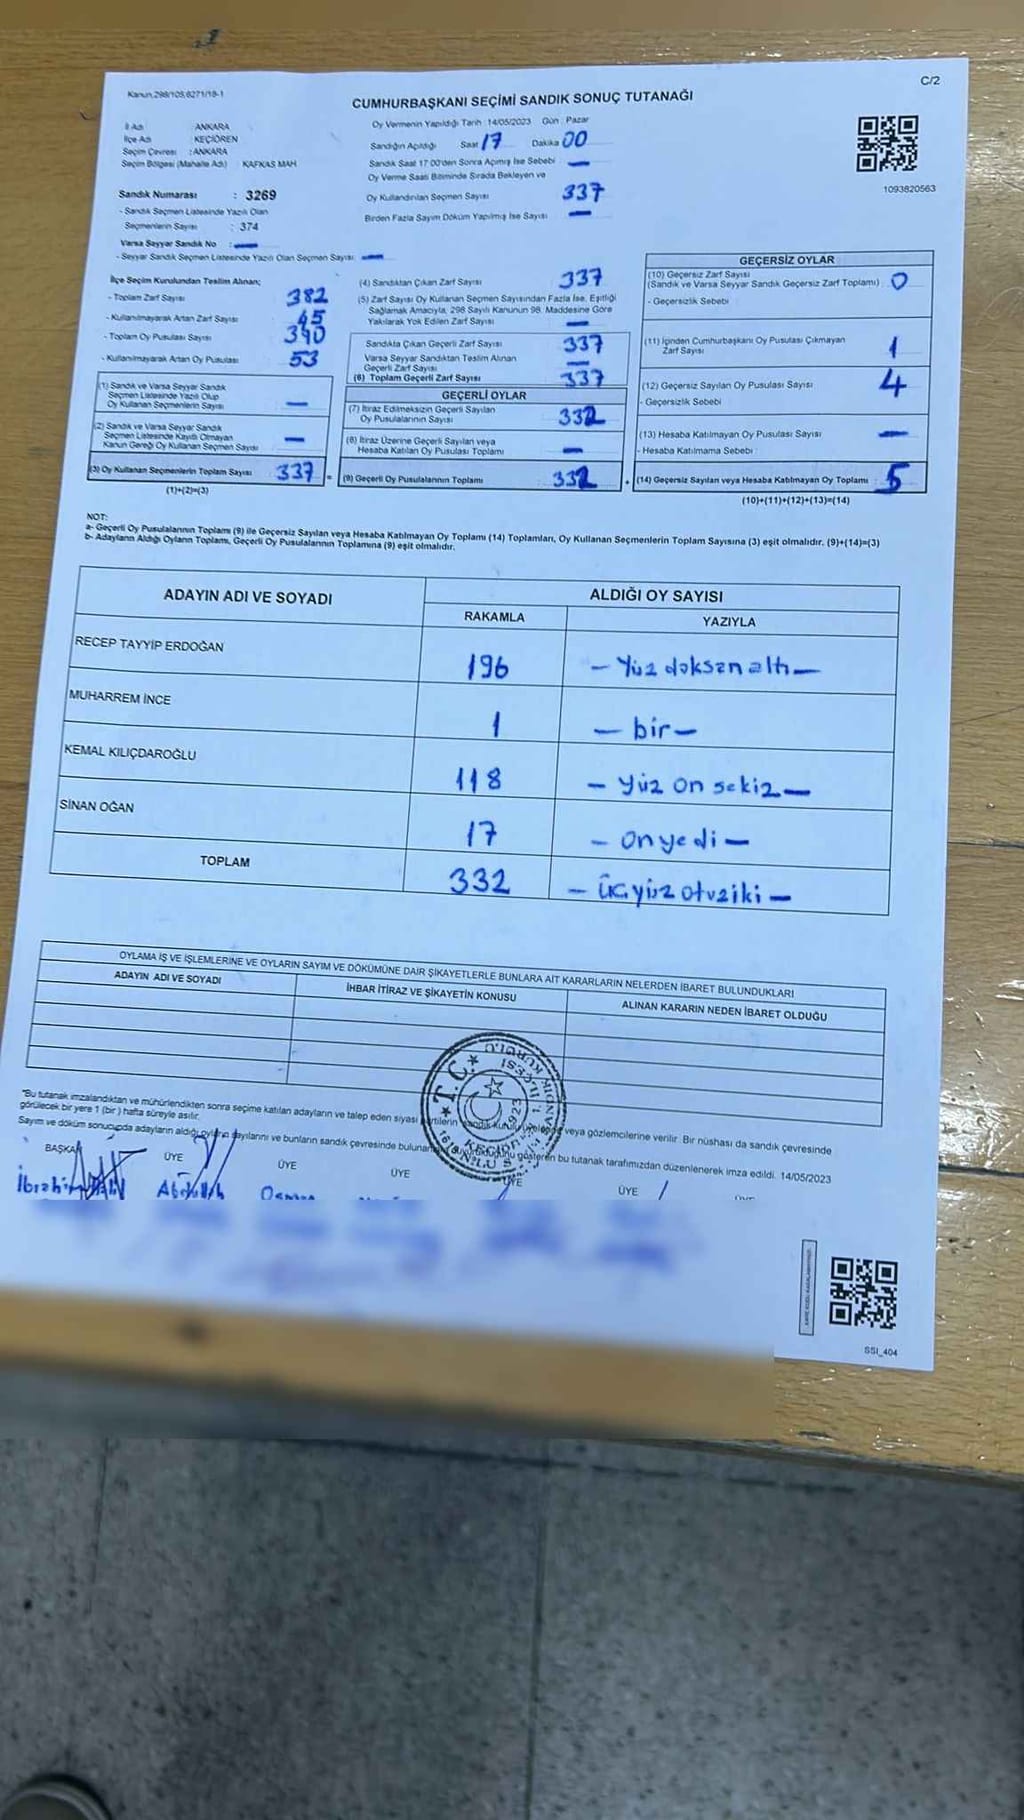 C/2
Kanun,298/105,6271/18-1
CUMHURBAŞKANI SEÇİMİ SANDIK SONUÇ TUTANAĞI
İl Adı : ANKARA
İlçe Adı : KEÇİÖREN
Seçim Çevresi : ANKARA
Seçim Bölgesi (Mahalle Adı) : KAFKAS MAH
Sandık Numarası : 3269
- Sandık Seçmen Listesinde Yazılı Olan
Seçmenlerin Sayısı : 374
Varsa Seyyar Sandık No : —
- Seyyar Sandık Seçmen Listesinde Yazılı Olan Seçmen Sayısı : —
Oy Vermenin Yapıldığı Tarih : 14/05/2023 Gün : Pazar
Sandığın Açıldığı Saat 17 Dakika 00
Sandık Saat 17:00'den Sonra Açılmış İse Sebebi —
Oy Verme Saati Bitiminde Sırada Bekleyen ve
Oy Kullandırılan Seçmen Sayısı 337
Birden Fazla Sayım Döküm Yapılmış İse Sayısı —
1093820563
İlçe Seçim Kurulundan Teslim Alınan;
- Toplam Zarf Sayısı 382
- Kullanılmayarak Artan Zarf Sayısı 45
- Toplam Oy Pusulası Sayısı 390
- Kullanılmayarak Artan Oy Pusulası 53
(1) Sandık ve Varsa Seyyar Sandık
Seçmen Listesinde Yazılı Olup
Oy Kullanan Seçmenlerin Sayısı —
(2) Sandık ve Varsa Seyyar Sandık
Seçmen Listesinde Kayıtlı Olmayan
Kanun Gereği Oy Kullanan Seçmen Sayısı —
(3) Oy Kullanan Seçmenlerin Toplam Sayısı 337 =
(1)+(2)=(3)
(4) Sandıktan Çıkan Zarf Sayısı 337
(5) Zarf Sayısı Oy Kullanan Seçmen Sayısından Fazla İse, Eşitliği
Sağlamak Amacıyla, 298 Sayılı Kanunun 98. Maddesine Göre
Yakılarak Yok Edilen Zarf Sayısı —
Sandıkta Çıkan Geçerli Zarf Sayısı 337
Varsa Seyyar Sandıktan Teslim Alınan
Geçerli Zarf Sayısı —
(6) Toplam Geçerli Zarf Sayısı 337
GEÇERLİ OYLAR
(7) İtiraz Edilmeksizin Geçerli Sayılan
Oy Pusulalarının Sayısı 332
(8) İtiraz Üzerine Geçerli Sayılan veya
Hesaba Katılan Oy Pusulası Toplamı —
(9) Geçerli Oy Pusulalarının Toplamı 332 +
GEÇERSİZ OYLAR
(10) Geçersiz Zarf Sayısı
(Sandık ve Varsa Seyyar Sandık Geçersiz Zarf Toplamı) 0
- Geçersizlik Sebebi
(11) İçinden Cumhurbaşkanı Oy Pusulası Çıkmayan
Zarf Sayısı 1
(12) Geçersiz Sayılan Oy Pusulası Sayısı 4
- Geçersizlik Sebebi
(13) Hesaba Katılmayan Oy Pusulası Sayısı —
- Hesaba Katılmama Sebebi :
(14) Geçersiz Sayılan veya Hesaba Katılmayan Oy Toplamı : 5
(10)+(11)+(12)+(13)=(14)
NOT:
a- Geçerli Oy Pusulalarının Toplamı (9) ile Geçersiz Sayılan veya Hesaba Katılmayan Oy Toplamı (14) Toplamları, Oy Kullanan Seçmenlerin Toplam Sayısına (3) eşit olmalıdır. (9)+(14)=(3)
b- Adayların Aldığı Oyların Toplamı, Geçerli Oy Pusulalarının Toplamına (9) eşit olmalıdır.
ADAYIN ADI VE SOYADI ALDIĞI OY SAYISI
RAKAMLA YAZIYLA
RECEP TAYYİP ERDOĞAN 196 — Yüz doksan altı —
MUHARREM İNCE 1 — bir —
KEMAL KILIÇDAROĞLU 118 — yüz on sekiz —
SİNAN OĞAN 17 — on yedi —
TOPLAM 332 — üçyüz otuziki —
OYLAMA İŞ VE İŞLEMLERİNE VE OYLARIN SAYIM VE DÖKÜMÜNE DAİR ŞİKAYETLERLE BUNLARA AİT KARARLARIN NELERDEN İBARET BULUNDUKLARI
ADAYIN ADI VE SOYADI İHBAR İTİRAZ VE ŞİKAYETİN KONUSU ALINAN KARARIN NEDEN İBARET OLDUĞU
*Bu tutanak imzalandıktan ve mühürlendikten sonra seçime katılan adayların ve talep eden siyasi partilerin sandık kurulu üyelerine veya gözlemcilerine verilir. Bir nüshası da sandık çevresinde
görülecek bir yere 1 (bir) hafta süreyle asılır.
Sayım ve döküm sonucunda adayların aldığı oyların sayılarını ve bunların sandık çevresinde bulunanlara duyurulduğunu gösteren bu tutanak tarafımızdan düzenlenerek imza edildi. 14/05/2023
BAŞKAN ÜYE ÜYE ÜYE ÜYE ÜYE
İbrahim Abdullah Osman
T.C.
SSI_404